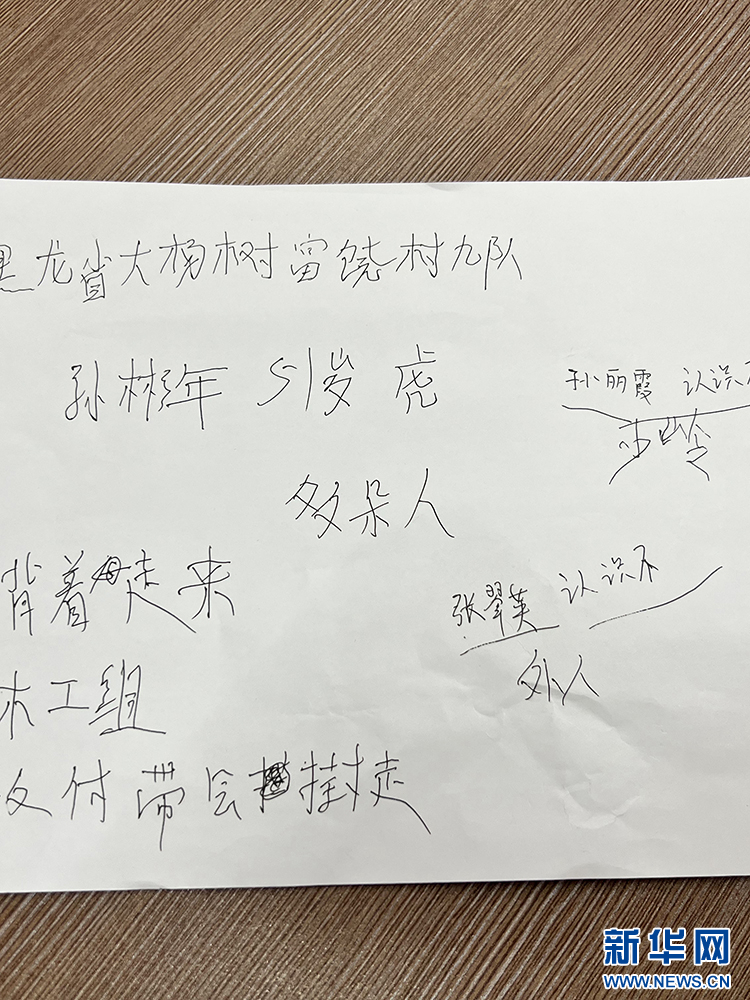 黑龙省大杨树富饶村九队
孙彬年 51岁 虎
孙丽霞 认识不
多朵人
背着 走来
张翠英 认识不
外人
木工组
父付带会 走
新华网
WWW.NEWS.CN